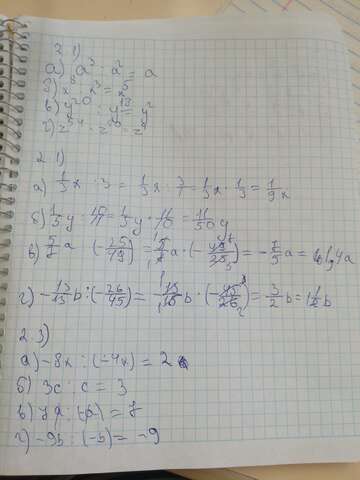 2 1)
а) a³ : a² = a
б) x⁸ : x³ = x⁵
в) y²⁰ : y¹⁸ = y²
2 1)
а) 1/3 x : 3 = 1/3 x : 3/1 = 1/3 x · 1/3 = 1/9 x
б) 1/5 y : 10/11 = 1/5 y · 11/10 = 11/50 y
в) 5/7 a : (-25/49) = 5/7 a · (-49/25) = -7/5 a = 1,4a
г) -13/15 b : (-26/45) = 13/15 b · (-45/26) = 3/2 b = 1 1/2 b
2 3)
а) -8x : (-4x) = 2
б) 3c : c = 3
г) -9b : (-b) = -9